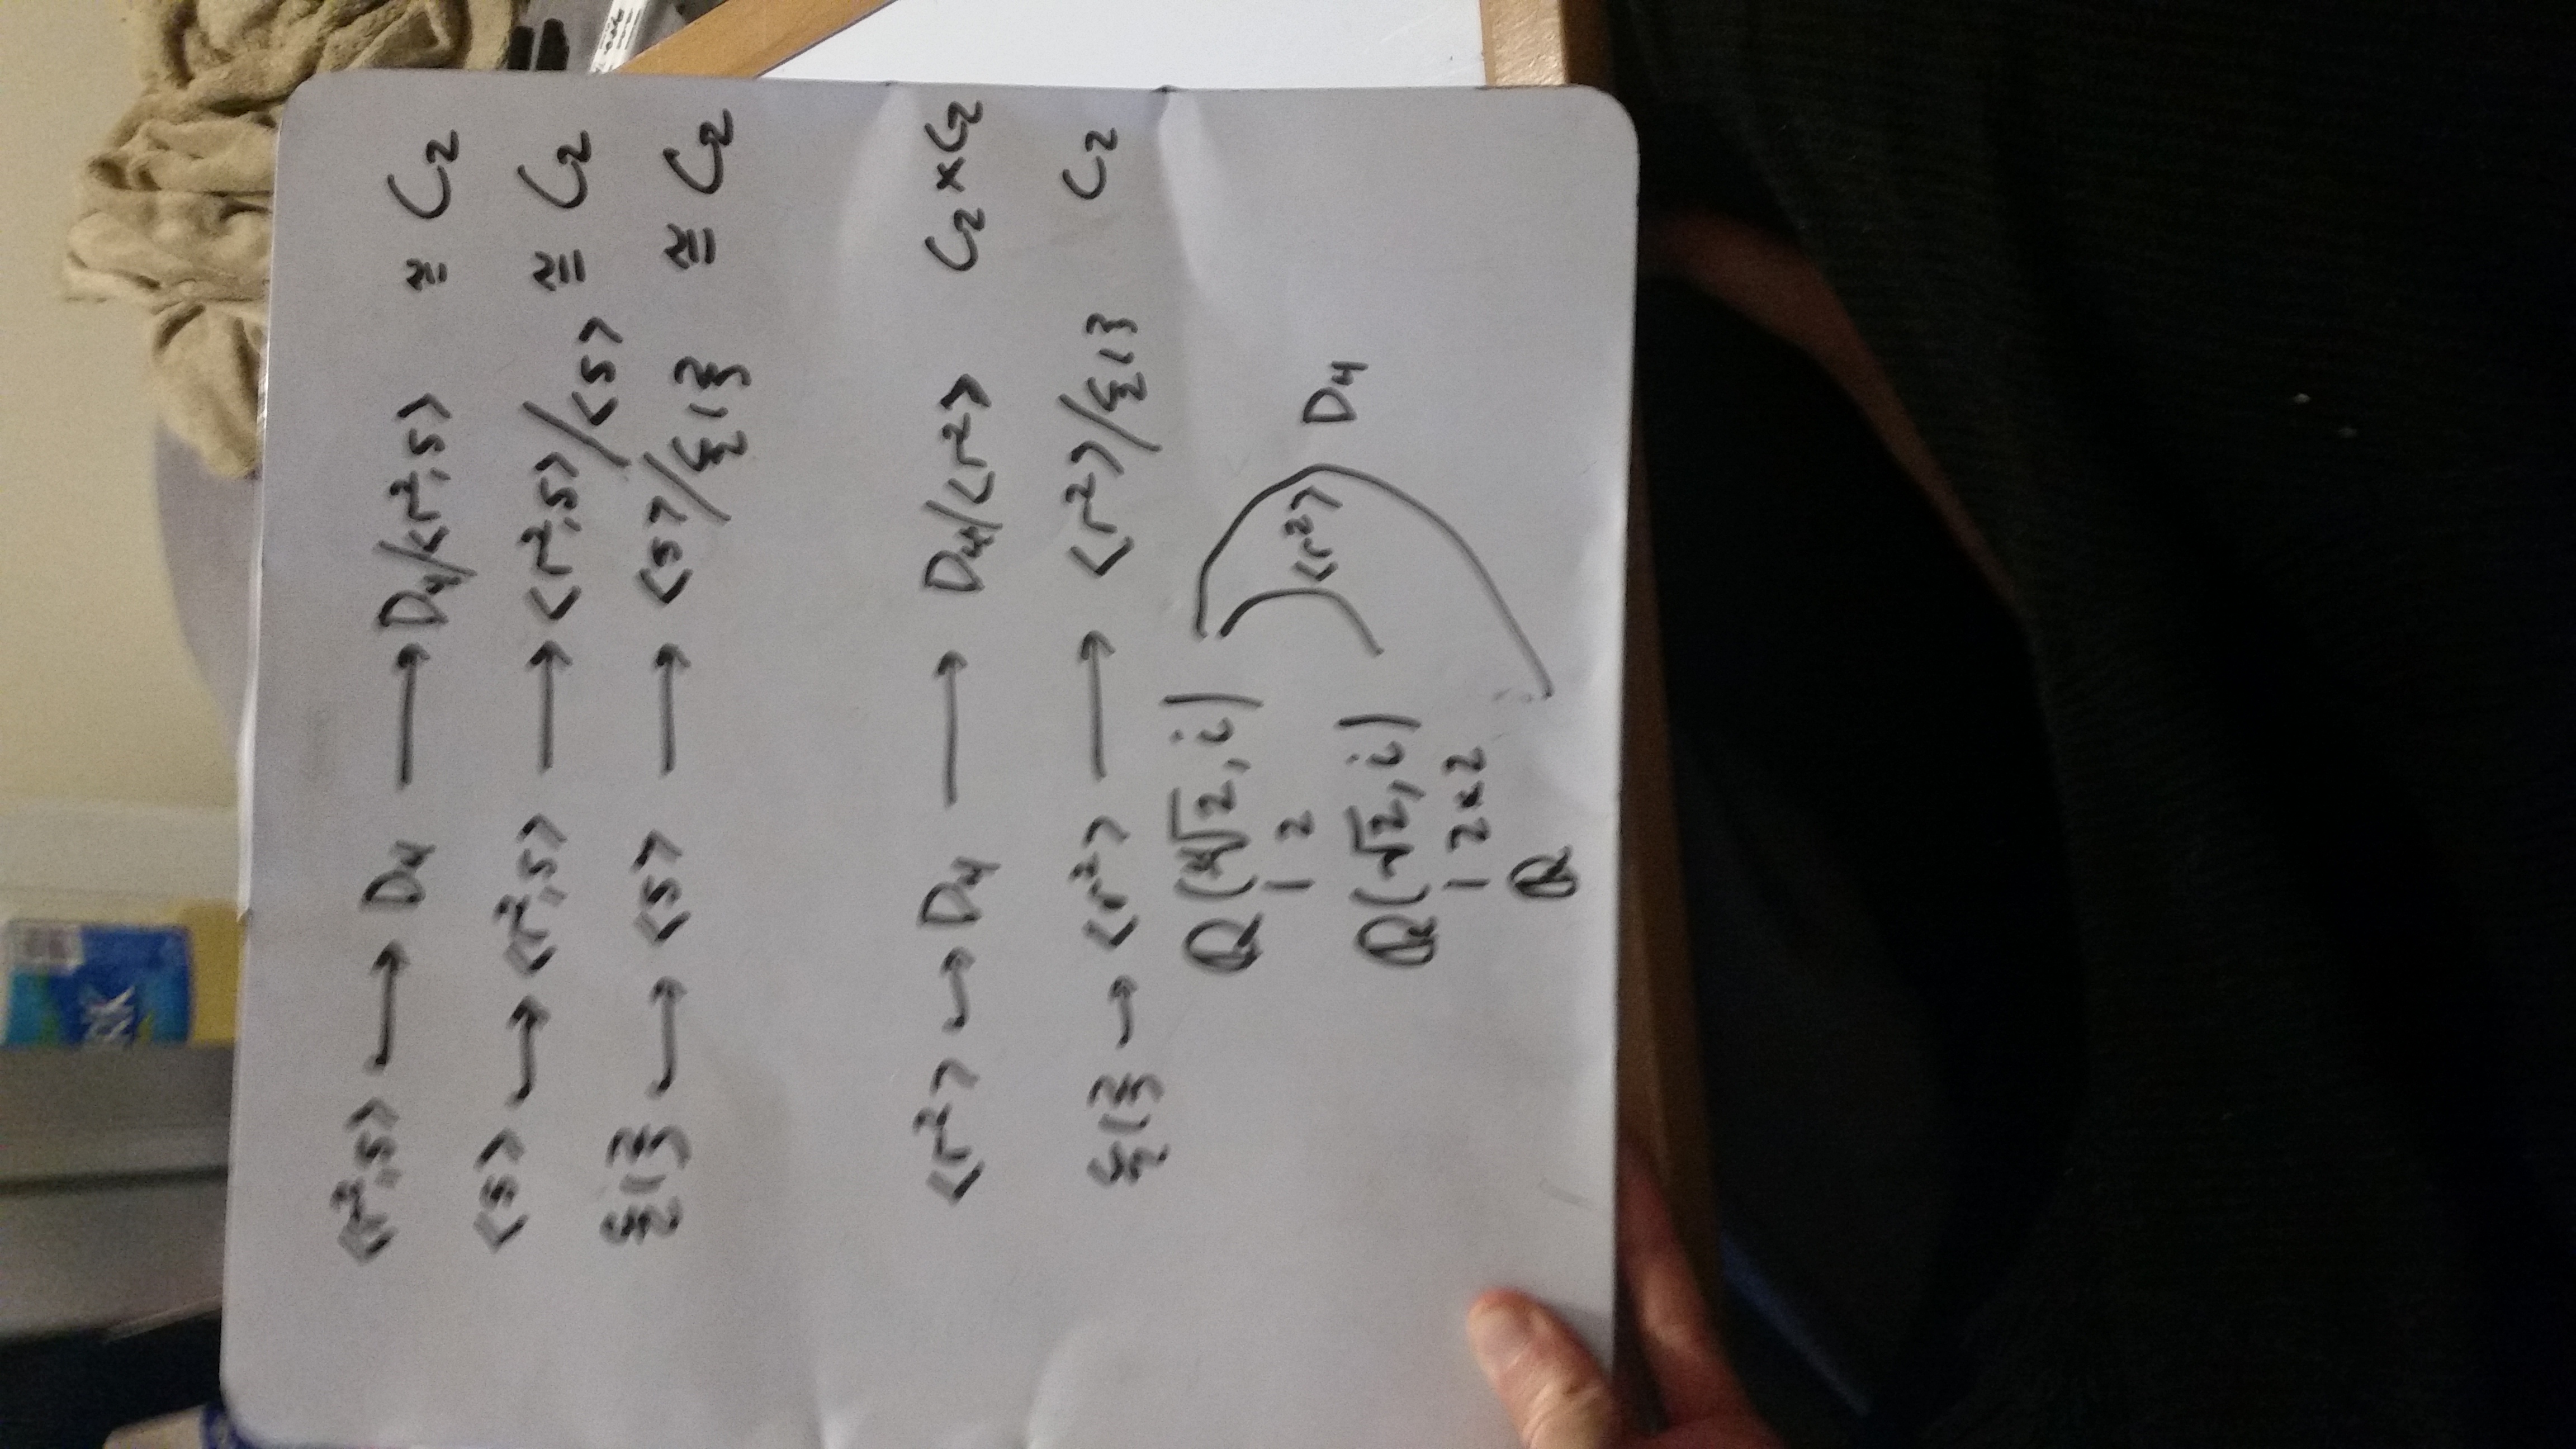 RK
<r²,s> ↪ D₄ → D₄/<r²,s> ≅ C₂
<s> ↪ <r²,s> → <r²,s>/<s> ≅ C₂
{1} ↪ <s> → <s>/{1} ≅ C₂
<r²> ↪ D₄ → D₄/<r²> C₂×C₂
{1} ↪ <r²> → <r²>/{1} C₂
ℚ(∜2, i)
| 2 <r²> D₄
ℚ(√2, i)
| 2×2
ℚ